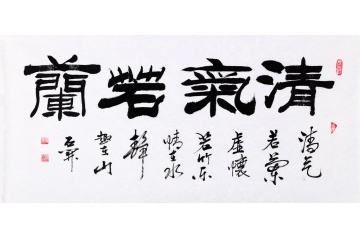 清氣若蘭
清气
若蘭
虚懷
若竹乐
情在水
静
趣在山